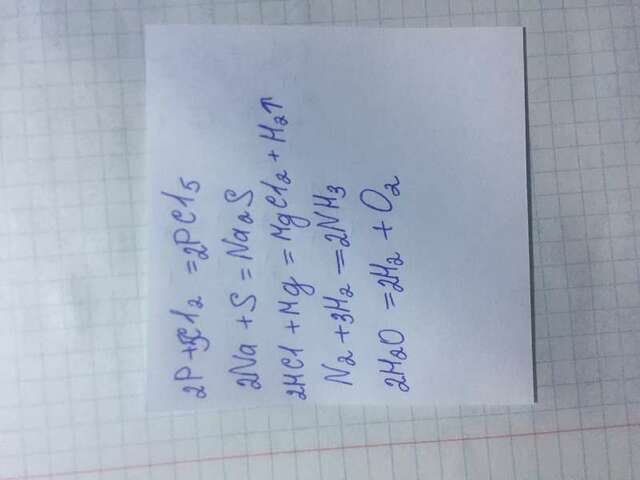 2P + 5Cl2 = 2PCl5
2Na + S = Na2S
2HCl + Mg = MgCl2 + H2↑
N2 + 3H2 = 2NH3
2H2O = 2H2 + O2